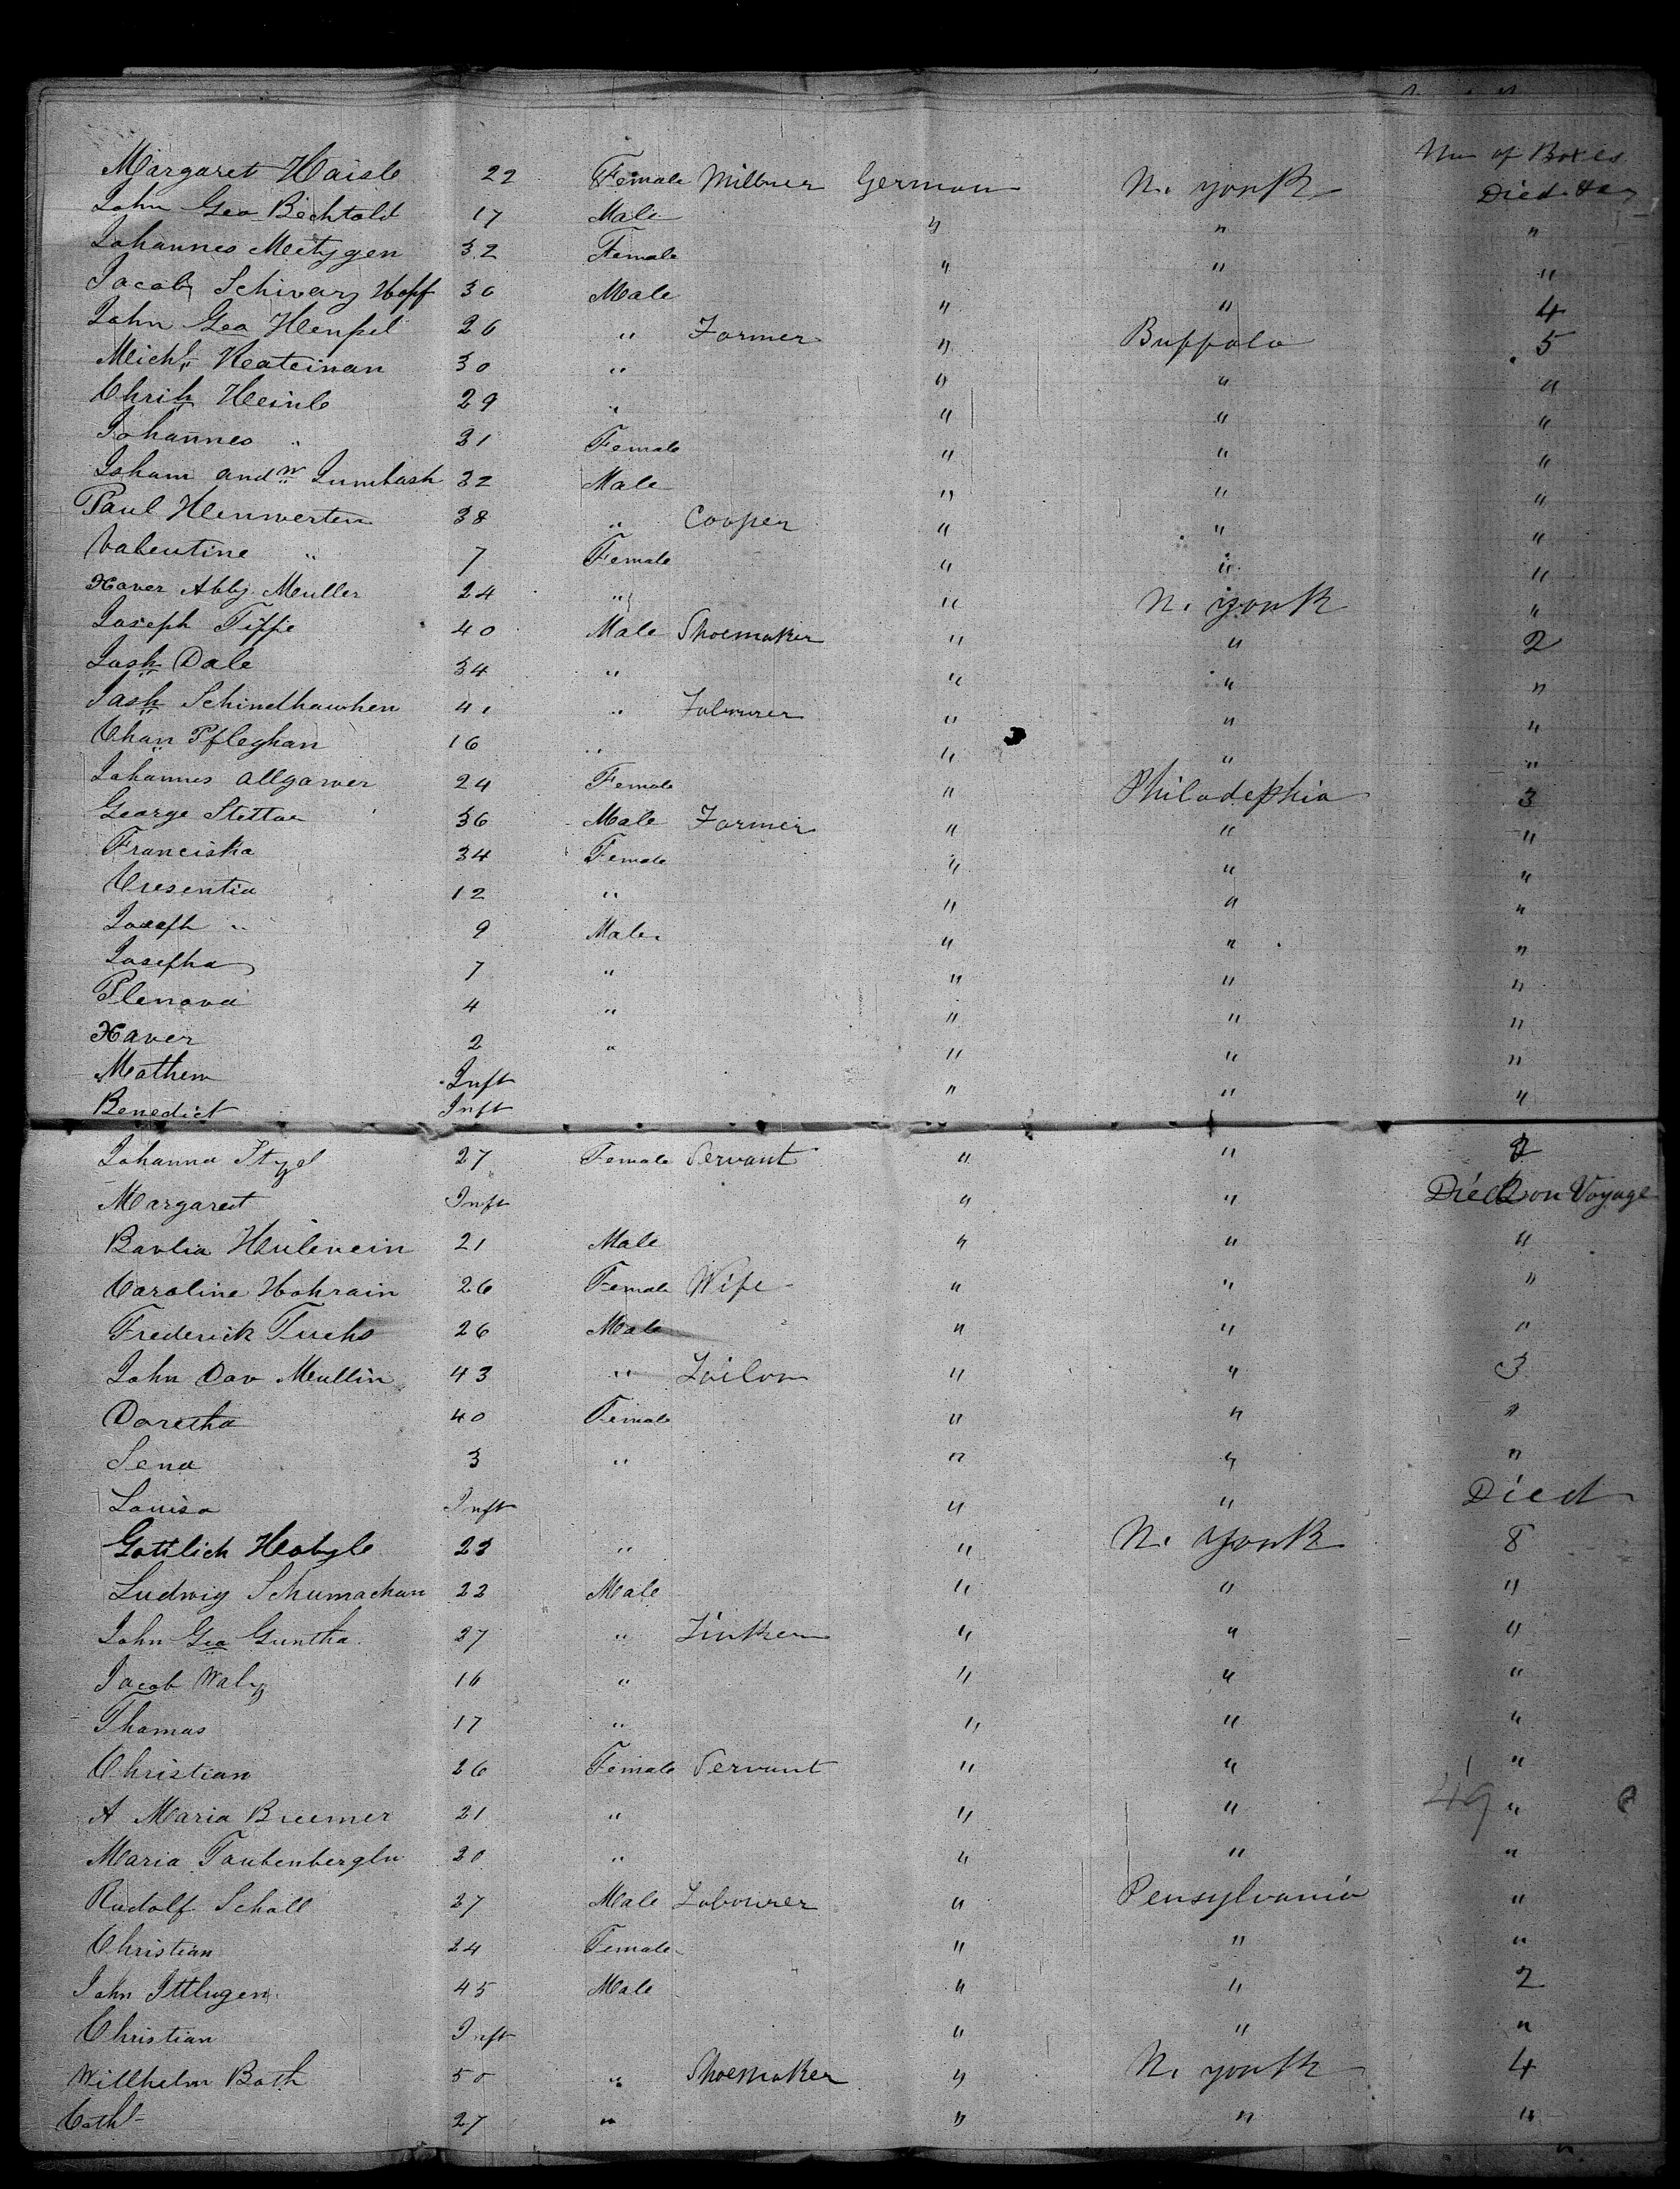 No of Boxes
Margaret Haisle 22 Female Milliner German N. york Died &
John Geo Bechtold 17 Male " " "
Johannes Metzgen 32 Female " " "
Jacob Schwarz Hopf 30 Male " " 4
John Geo Henfel 26 " Farmer " Buffalo 5
Michl Kateinan 30 " " " "
Chrih Heinle 29 " " " "
Johannes " 31 Female " " "
Joham andw Lumbash 32 Male " " "
Paul Henwerten 38 " Cooper " " "
Valentine " 7 Female " " "
Xaver Abby Muller 24 " " N. york "
Joseph Tiffe 40 Male Shoemaker " " 2
Josh Dale 34 " " " "
Josh Schindhawhen 41 " Labourer " " "
Chan Pfleghan 16 " " " "
Johannes Allgawer 24 Female " Philadephia 3
George Stettor 36 Male Farmer " " "
Franciska 34 Female " " "
Cresentia 12 " " " "
Joseph " 9 Male " " "
Josefha 7 " " " "
Plenova 4 " " " "
Xaver 2 " " " "
Mathew Inft " " "
Benedict Inft
Johanna Stygel 27 Female Servant " " 2
Margaret Inft " " Died on Voyage
Bavlia Heulevein 21 Male " " "
Caroline Hohrain 26 Female Wife " " "
Frederick Fuchs 26 Male " " "
John Dav Mullin 43 " Tailor " " 3
Doretha 40 Female " " "
Sena 3 " " " "
Louisa Inft " " Died
Gottlich Hobyle 23 " " N. York 8
Ludwig Schumachan 22 Male " " "
John Geo Guntha 27 " Tinker " " "
Jacob Walz 16 " " " "
Thomas 17 " " " "
Christian 26 Female Servant " " "
A Maria Breemer 21 " " " " 49
Maria Taubenbergln 20 " " " "
Rudolf Scholl 27 Male Labourer " Pensylvania "
Christian 24 Female " " "
John Ittlugen 45 Male " " 2
Christian Inft " " "
Willhelm Bath 50 " Shoemaker " N. york 4
Cathl 27 " " " "